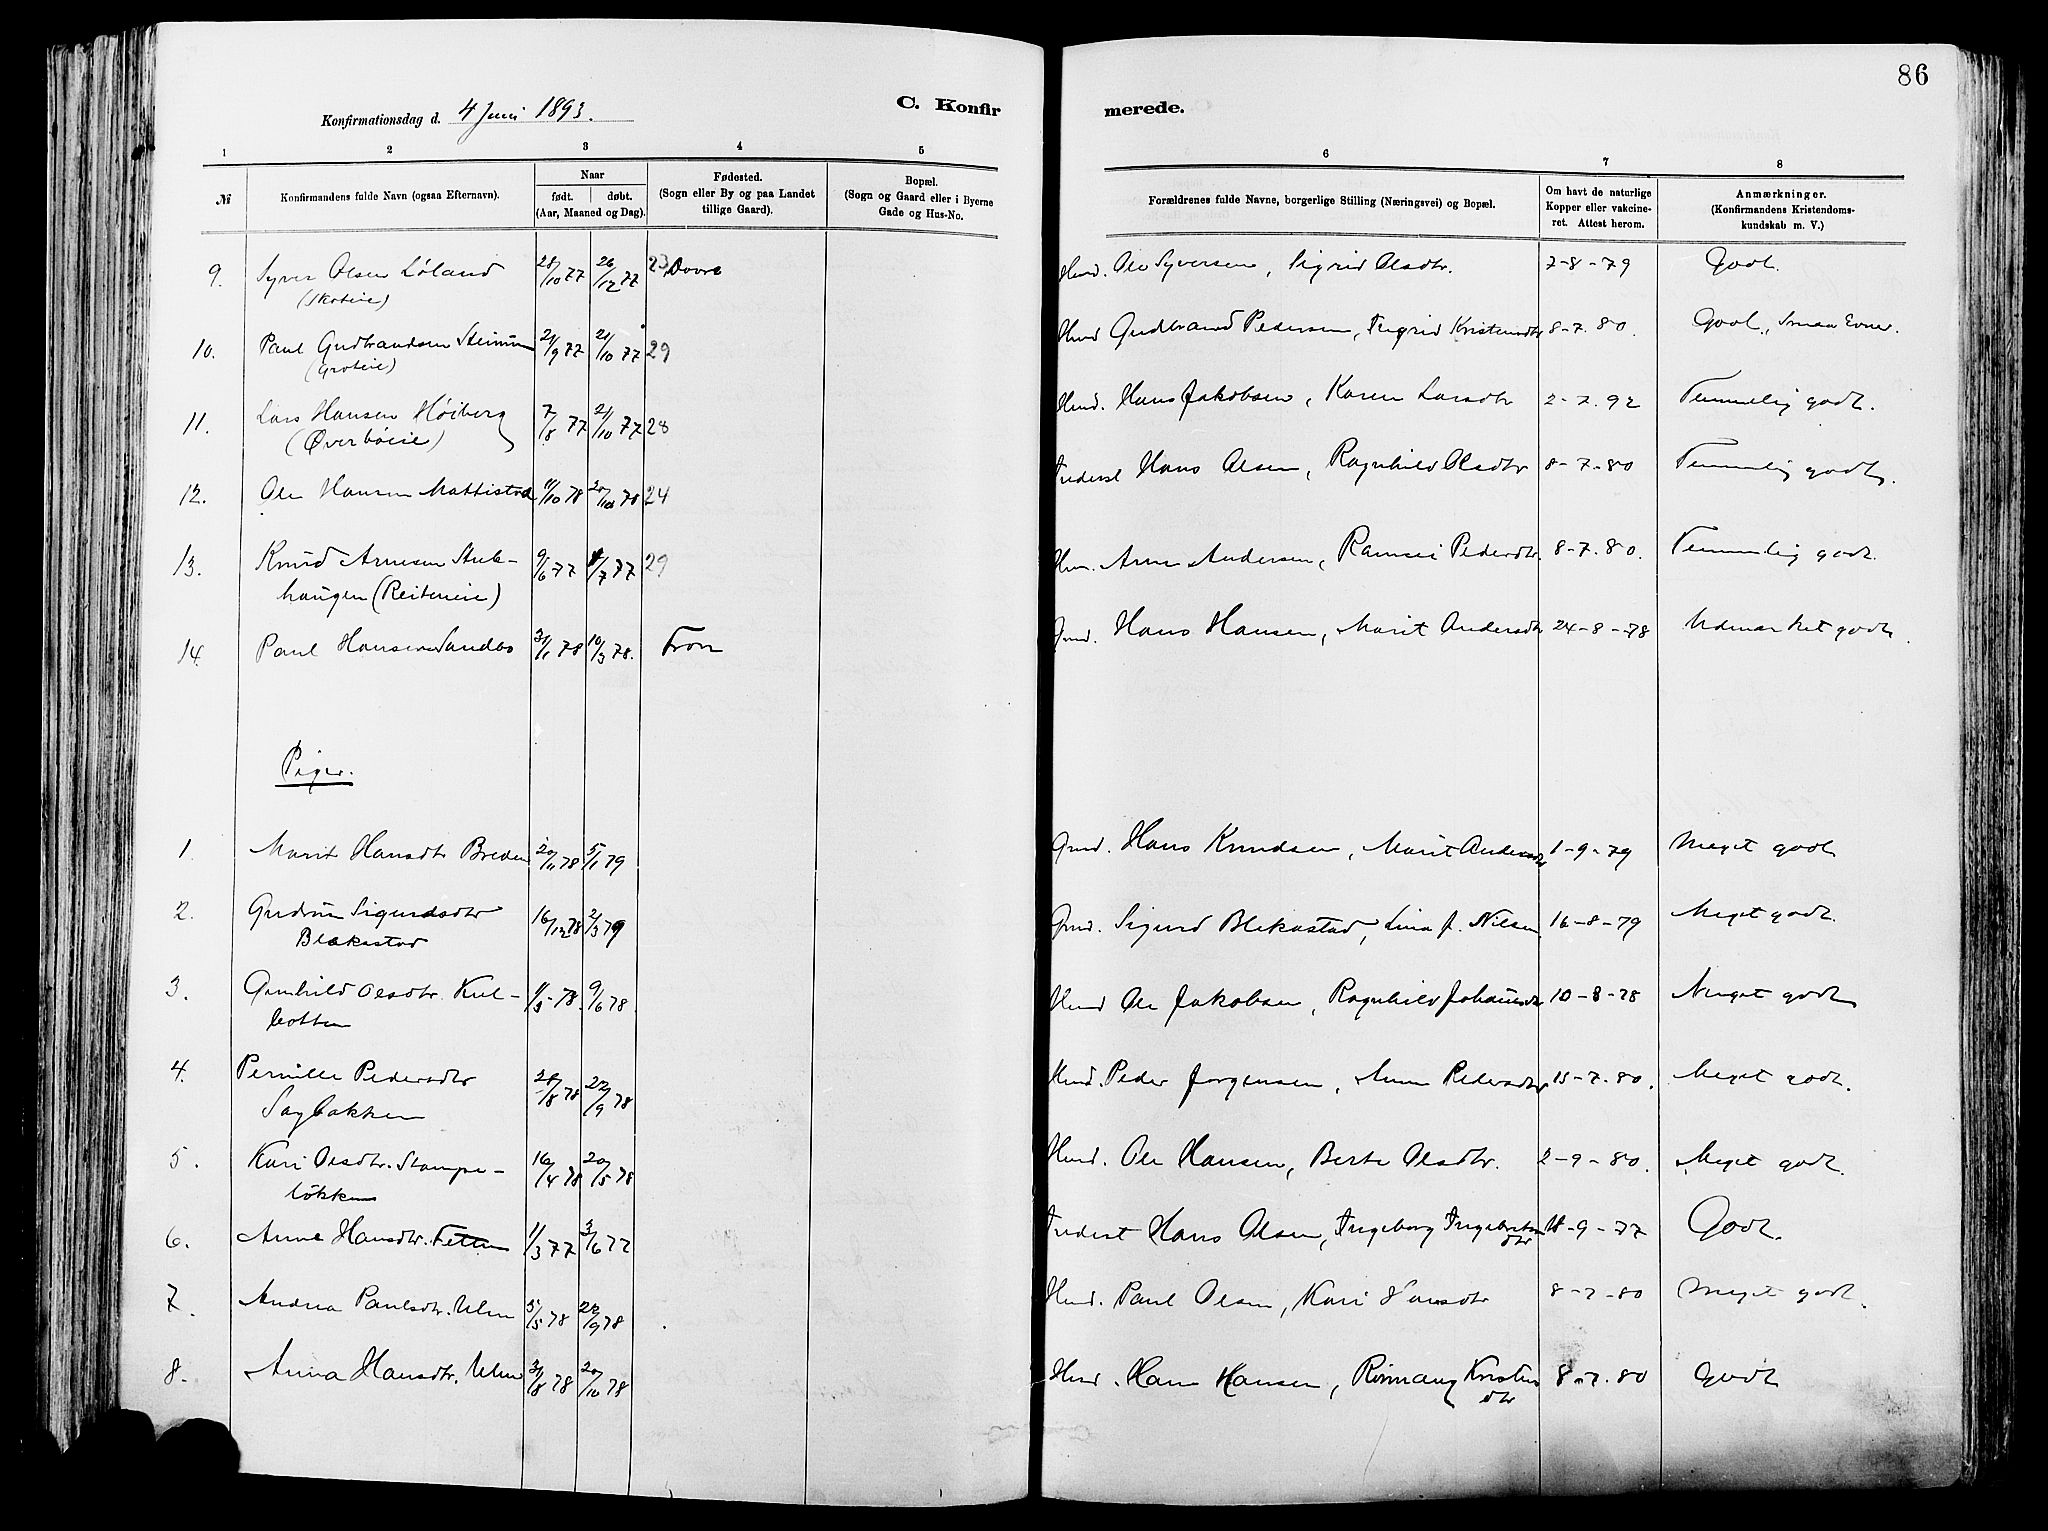 86
Konfirmationsdag d. 4 Juni 1893.
C. Konfirmerede.
1 2 3 4 5 6 7 8
№
Konfirmandens fulde Navn (ogsaa Efternavn).
Naar
født. døbt.
(Aar, Maaned og Dag).
Fødested.
(Sogn eller By og paa Landet
tillige Gaard).
Bopæl.
(Sogn og Gaard eller i Byerne
Gade og Hus-No.
Forældrenes fulde Navne, borgerlige Stilling (Næringsvei) og Bopæl.
Om havt de naturlige
Kopper eller vakcine-
ret. Attest herom.
Anmærkninger.
(Konfirmandens Kristendoms-
kundskab m. V.)
9. Syver Olsen Löland 28/10 77 26/12 77 23 Dovre Husd. Ole Syversen, Sigrid Olsdtr. 7-8-79 Godt.
10. Paul Gudbrandsen 24/9 77 21/10 77 29 Husd Gudbrand Pedersen, Ingrid Kristensdtr 8-7.80. Godt, Smaa Evner.
11. Lars Hansen Höiberg 7/8 77 21/10 77 28 Husd. Hans Jakobsen, Karen Larsdtr 2-7.92 Temmelig godt.
(Øverböeie)
12. Ole Hansen Mattistad 11/10 78 78 24 Inderst Hans Olsen, Ragnhild Olsdtr 8-7-80 Temmelig godt.
13. Knud Arnesen Stub- 9/6 77 /7 77 29 Arne Andersen, Pedersdtr. 8-7.80. Temmelig godt.
haugen (Reiteneie)
14. Paul Hansen Sandbo 31/1 78 10/3 78. Fron Grd. Hans Hansen, Marit Andersdtr 24-8-78 Udmærket godt.
Piger.
1. Marit Hansdtr Breden 20/11 78 5/1 79 Grd. Hans Knudsen, Marit Andersdtr 1-9-79 Meget godt
2. Gudrun Sigurdsdtr 16/12 78 2/3 79 Grd. Sigurd Blekastad, Lina J. Nilsen 16-8-79 Meget godt.
Blekastad
3. Gunhild Olsdtr. Kul- 1/3-78. 9/6 78. Husd Ole Jakobsen, Ragnhild Johannesdtr 10-8-78 Meget godt
botten
4. Pernille Pedersdtr 28/8 78 22/9 78 Husd. Peder Jörgensen, Anne Pedersdtr 15-7.80. Meget godt.
Sagbakken
5. Kari Olsdtr. Stampe- 16/4 78 20/5 78 Husd. Ole Hansen, Berte Olsdtr. 2-9-80. Meget godt.
lökken
6. Anne Hansdtr. 11/3 77 3/6 77 Inderst Hans Olsen, Ingeborg Ingebrigtsdtr 11-9-77 Godt.
7. Andrea Paulsdtr. Ulen 5/5 78 22/9 78 Husd. Paul Olsen, Kari Hansdtr 8-7-80 Meget godt.
8. Anna Hansdtr. Ulen 31/8 78 20/10 78 Husd. Hans Hansen, Rönnaug Kristens 8-7.80 Godt
dtr